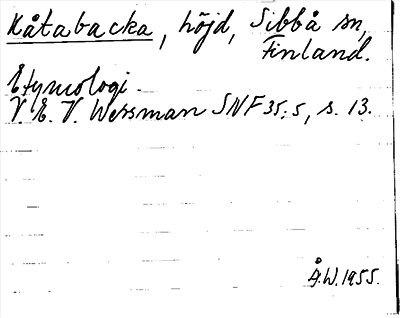 Kåtabacka, höjd, Sibbå sn,
Finland.
Etymologi.
V. E. V. Wessman SNF 35:5, s. 13.
Å.W. 1955.